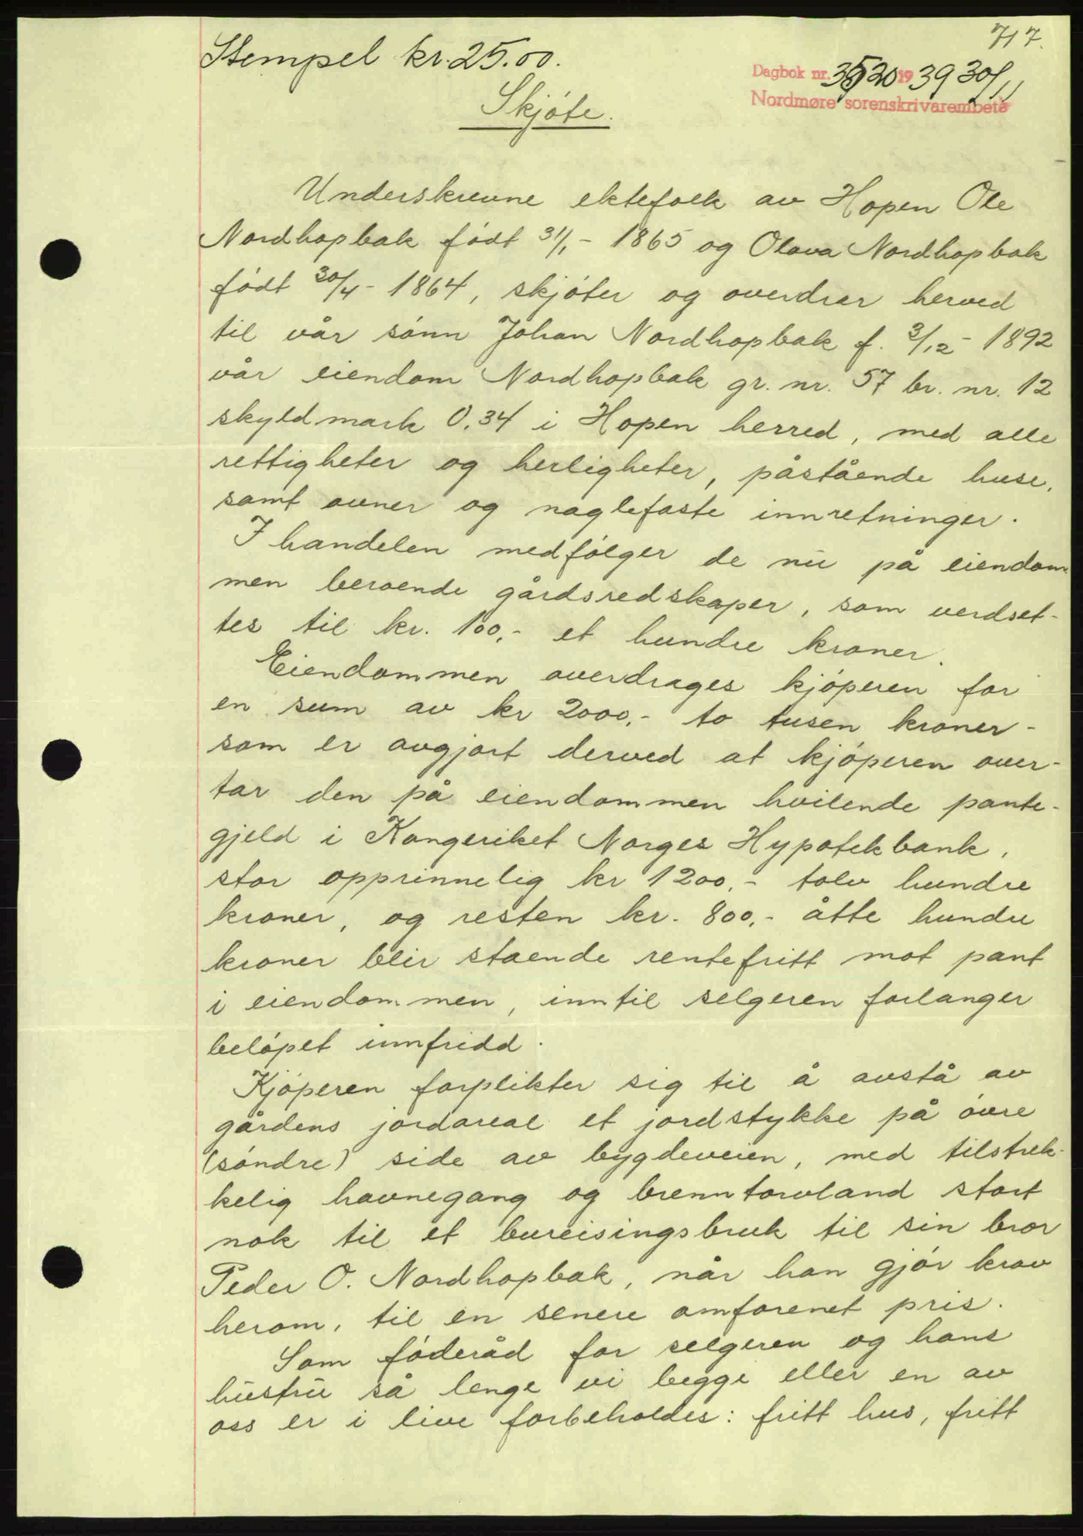 717.
Stempel kr. 25.00.
Dagbok nr. 3520 1939 30/11
Nordmøre sorenskrivarembete
Skjóte.
Underskrevne ektefolk av Hopen Ole
Nordhopbak født 31/1- 1865 og Olava Nordhopbak
født 30/4- 1864, skjóter og overdrar herved
til vår sónn Johan Nordhopbak f. 3/12- 1892
vår eiendom Nordhopbak gr. nr. 57 br. nr. 12
skyldmark 0,34 i Hopen herred, med alle
rettigheter og herligheter, påstående huse,
samt ovner og naglefaste innretninger.
I handelen medfólger de nu på eiendom
men beroende gårdsredskaper, som verdset-
tes til kr. 100,- et hundre kroner.
Eiendommen overdrages kjóperen for
en sum av kr 2000,- to tusen kroner -
som er avgjort derved at kjóperen over-
tar den på eiendommen hvilende pante-
gjeld i Kongeriket Norges Hypotekbank,
stor opprinnelig kr 1200,- tolv hundre
kroner, og resten kr. 800,- åtte hundre
kroner blir stående rentefritt mot pant
i eiendommen, inntil selgeren forlanger
belópet innfridd.
Kjóperen forplikter sig til å avstå av
gårdens jordareal et jordstykke på óvre
(sóndre) side av bygdeveien, med tilstrek-
kelig havnegang og brenntorvland stort
nok til et bureisingsbruk til sin bror
Peder O. Nordhopbak, når han gjór krav
herom, til en senere omforenet pris.
Som fóderåd for selgeren og hans
hustru så lenge vi begge eller en av
oss er i live forbeholdes: fritt hus, fritt